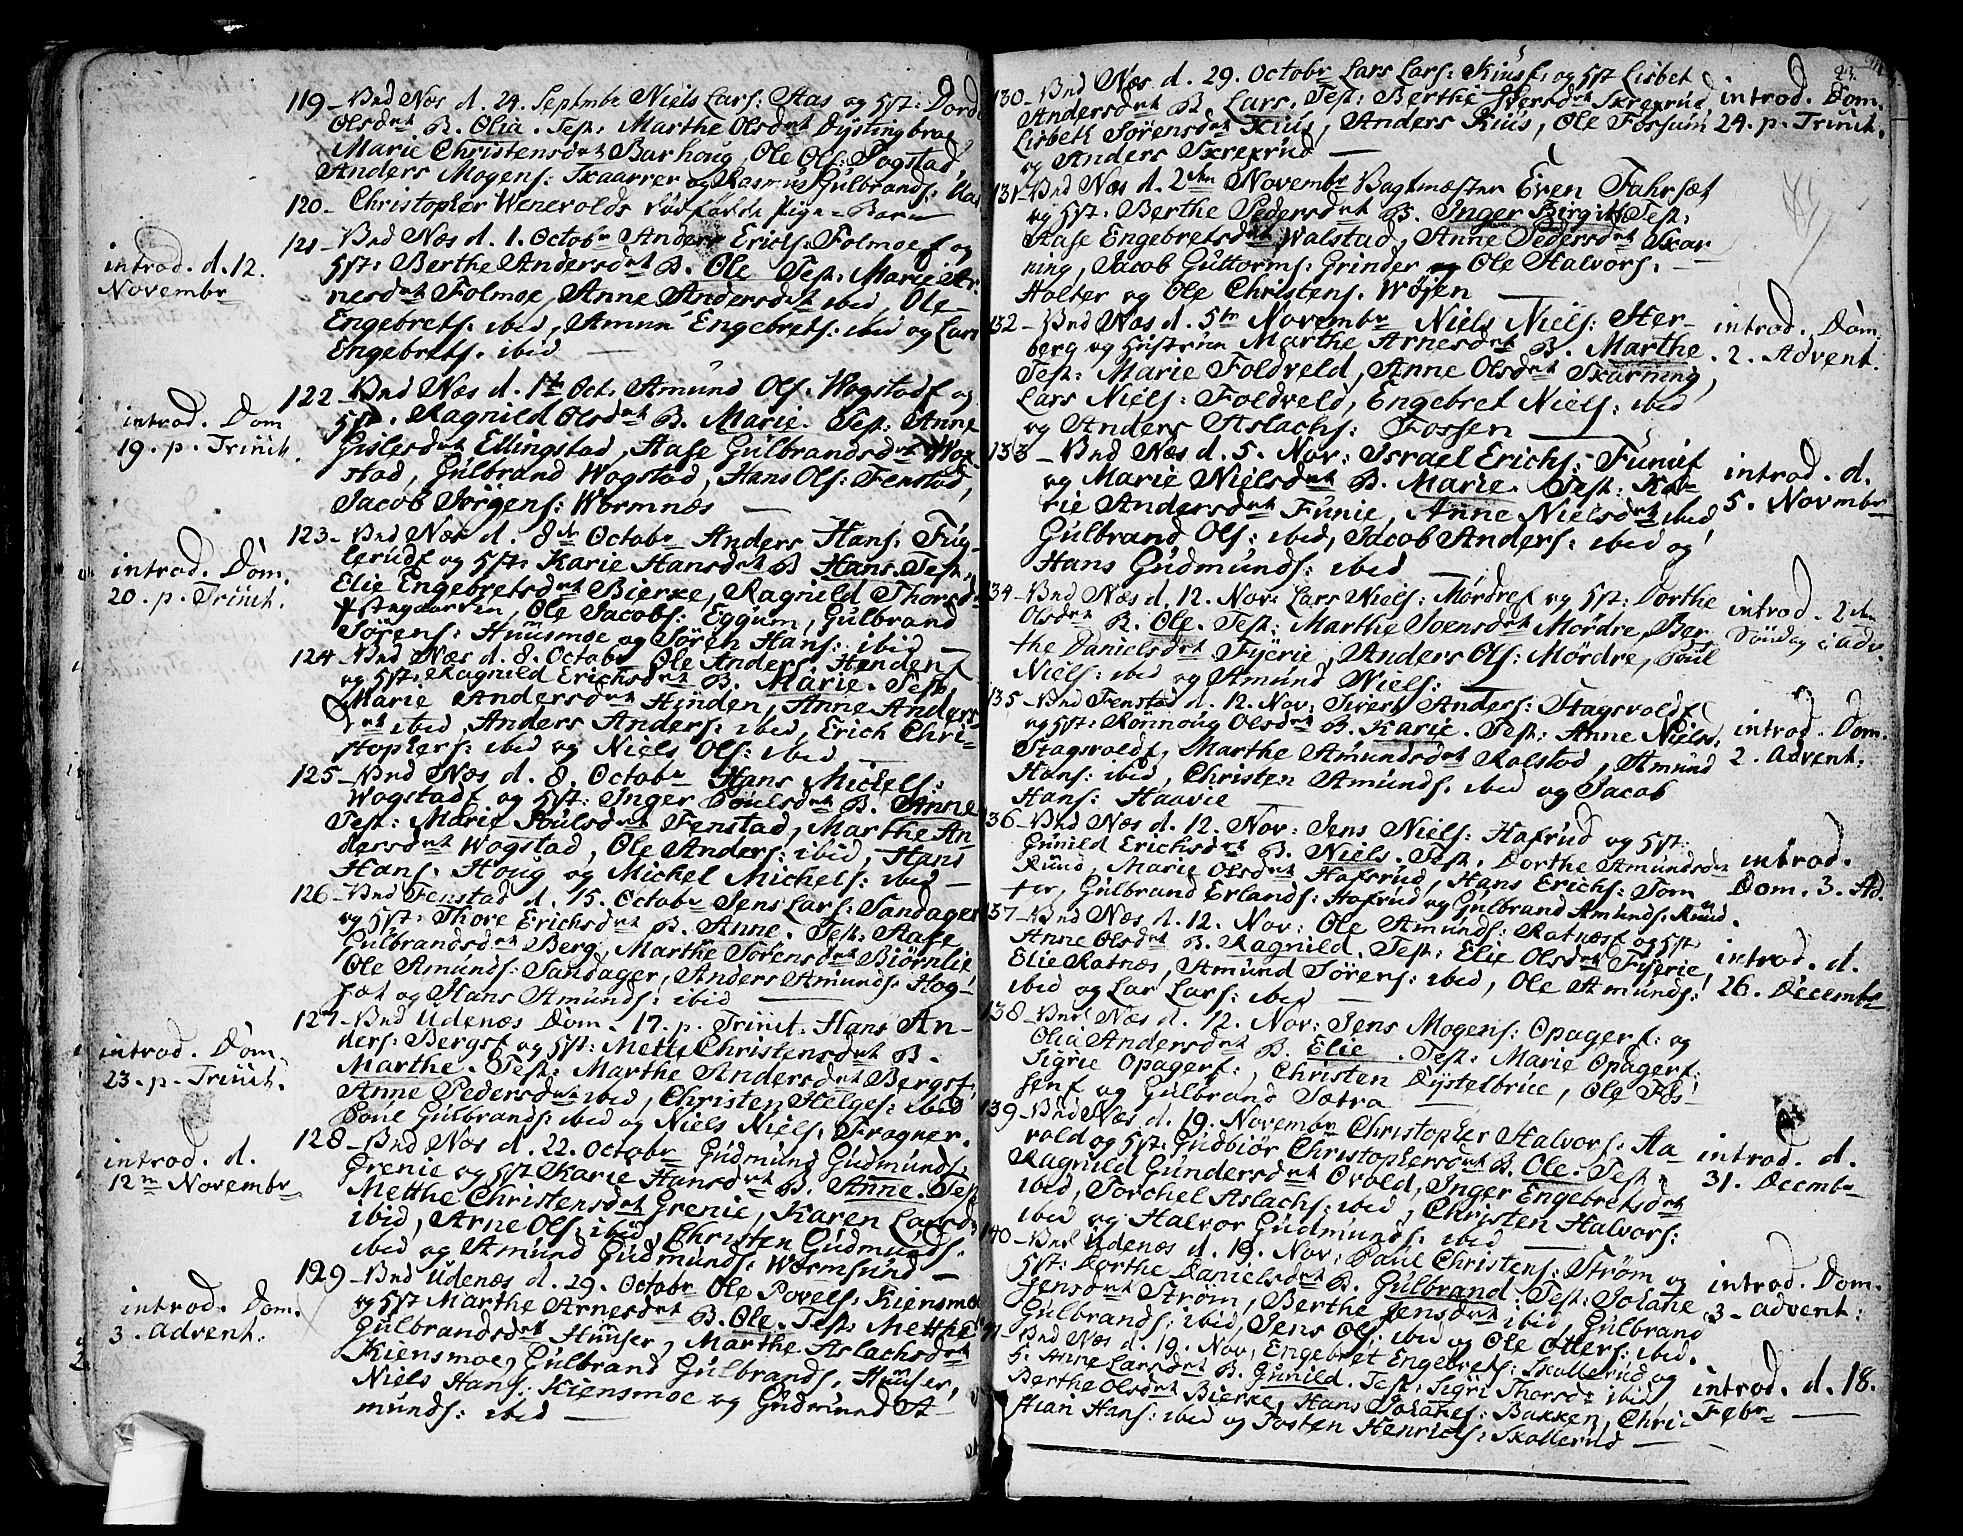 119 - Vud Næs d. 24. Septembr Niels Lars: Aas og Hst: Dorde
Olsdtr B. Olia. Test: Marthe Olsdtr Dystingbrue
Marie Christensdtr Barhoug, Ole Ols: Sogstad,
Anders Mogens: Skaarrer og Rasmus Gulbrands:
120 - Christopher Wenevolds dødfødde Pige-Barn
121 - Vud Næs d. 1. Octobr Anders Erichs: Folmoef og
Hst: Berthe Andersdtr B. Ole Test: Marie Ar-
nesdtr Folmoe, Anne Andersdtr ibid, Ole
Engebrets: ibid, Amun Engebrets: ibid og Lars
Engebrets. ibid
introd. d. 12.
Novembr
122 - Vud Næs d. 1te Oct. Amund Ols: Wogstadf og
Hst. Ragnild Olsdtr B. Marie. Test: Anne
Gislesdtr Ellingstad, Aase Gulbrandsdtr Wog-
stad, Gulbrand Wogstad, Hans Ols: Fenstad,
Jacob Jørgens: Wormnæs
introd. Dom
19. p. Trinit.
123 - Vud Næs d. 8de Octobr Anders Hans: Fug-
lerudf og Hst: Karie Hansdtr B Hans. Test.
Elie Engebretsdtr Bierke, Ragnild Thoresd:
Østegaarden, Ole Jacobs: Eggum, Gulbrand
Sørens: Huusmoe og Søren Hans: ibid
introd. Dom.
20. p. Trinit.
124 Vud Næs d. 8. Octobr Ole Anders. Hendenf
og Hst: Ragnild Erichsdtr B. Marie. Test,
Marie Andersdtr Hinden, Anne Anders
dtr ibid, Anders Anders: ibid, Erich Chri-
stophers: ibid og Niels Ols: ibid
125 - Vud Næs d. 8. Octobr Hans Michels:
Wogstadf og Hst: Inger Poulsdtr B. Anne
Test: Marie Poulsdtr Fenstad, Marthe An
dersdtr Wogstad, Ole Anders: ibid, Hans
Hans. Houg og Michel Michels: ibid
126 - Vud Fenstad d. 15. Octobr Jens Lars: Sandager
og Hst: Thore Erichsdtr B. Anne. Test: Aase
Gulbrandsdtr Berg, Marthe Sørensdtr Biørnlie
Ole Amunds: Sandager, Anders Amunds: Hog-
sæt og Hans Amunds: ibid
127 - Vud Udenæs Dom. 17. p. Trinit. Hans An-
ders: Bergsf og Hst: Mette Christensdtr B.
Marthe. Test: Marthe Andersdtr Bergsf.
Anne Pedersdtr ibid, Christen Helges: ibid
Poul Gulbrands: ibid og Niels Niels: Frogner.
introd. Dom.
23. p. Trinit.
128 - Vud Næs d. 22. Octobr Gudmund Gudmunds:
Grenie og Hst Karie Hansdtr B. Anne. Test
Metthe Christensdtr Grenie, Karen Larsd:
ibid, Arne Ols: ibid, Christen Gudmunds.
ibid og Amund Gudmunds: Wormsund
introd. d.
12te Novembr
129 - Vud Udenæs d. 29. Octobr Ole Povels: Kiensmoe
og Hst Marthe Arnesdtr B. Ole. Test: Metthe
Gulbrandsdtr Huuser, Marthe Aslachsdtr
Kiensmoe, Gulbrand Gulbrands. Huuser,
Niels Hans: Kiensmoe og Gudmund A
munds: ibid
introd. Dom.
3. Advent:
23.
130 - Vud Næs d. 29. Octobr Lars Lars: Kiusf. og Hst Lisbet
Andersdtr B. Lars. Test: Berthe Iversdtr Skrexrud
Lisbeth Sørensdtr Kius, Anders Kius, Ole Fossum
og Anders Skrexrud
introd. Dom.
24. p. Trinit.
131 - Vud Næs d. 2den Novembr Vagtmester Even Fahrsæt
og Hst. Berthe Pedersdtr B. Inger Birgith Test:
Aase Engebretsdtr Walstad, Anne Pedersdtr Skar
ning, Jacob Guttorms: Grinder og Ole Halvors.
Holter og Ole Christens. Wøjen
132 - Vud Næs d. 5te Novembr Niels Niels: Her-
berg og Hustrue Marthe Arnesdtr B. Marthe.
Test: Marie Foldveld, Anne Olsdtr Skarning,
Lars Niels: Foldveld, Engebret Niels: ibid
og Anders Aslachs: Fossen
introd. Dom
2. Advent.
133 - Vud Næs d. 5. Nov: Israel Erichs: Funief
og Marie Nielsdtr B. Marie. Test: Ka-
rie Andersdtr Funie, Anne Nielsdtr ibid
Gulbrand Ols: ibid, Jacob Anders: ibid og
Hans Gudmunds: ibid
introd. d.
5. Novembr
134 - Vud Næs d. 12. Nov. Lars Niels: Mørdref og Hst: Dorthe
Olsdtr B. Ole. Test: Marthe Svensdtr Mørdre, Ber-
the Danielsdtr Fjerie, Anders Ols: Mørdre, Poul
Niels: ibid og Amund Niels:
introd. 2den
Søndag i Adv.
135 - Vud Fenstad d. 12. Nov: Siverd Anders: Hagsvoldf
og Hst: Rønnoug Olsdtr B. Karie. Test: Anne Niels.
Hagsvoldf, Marthe Amundsdtr Rolstad, Amund
Hans: ibid, Christen Amunds. ibid og Jacob
Hans: Haavie
introd. Dom.
2. Advent:
136 - Vud Næs d. 12. Nov: Jens Niels: Hafrud og Hst:
Gunild Erichsdtr B. Niels. Test. Dorthe Amundsdr
Ruud, Marie Olsdtr Hafsrud, Hans Erichs: Tom
ter, Gulbrand Erlands: Hafrud og Gulbrand Amunds: Ruud.
introd.
Dom. 3. Ad.
137 - Vud Næs d. 12. Nov: Ole Amunds: Ratnæsf og Hst.
Anne Olsdtr B. Ragnild. Test: Elie Olsdtr Fjerie,
Elie Ratnæs, Amund Sørens: ibid, Ole Amunds:
ibid og Lar Lars: ibid
introd. d.
26. Decembr
138 - Vud Næs d. 12. Nov: Jens Mogens: Opagerf: og
Olia Andersdtr B. Elie. Test: Marie Opagerf:
Sigrie Opagerf:, Christen Dystelbrue, Ole Fos-
senf og Gulbrand Sætra
139 - Vud Næs d. 19. Novembr Christopher Halvors: Aa-
rold og Hst: Gudbiør Christophersdtr B. Ole. Test:
Ragnild Gundersdtr Ovold, Inger Engebretsdtr
ibid, Torchel Aslachs: ibid, Christen Halvors:
ibid og Halvor Gudmunds: ibid
introd. d.
31. Decmbr
140 - Vud Udenæs d. 19. Nov: Paul Christens: Strøm og
Hst: Dorthe Danielsdtr B. Gulbrand: Test: Johane
Jensdtr Strøm, Berthe Jensdtr ibid, Gulbrand
Gulbrands: ibid, Jens Ols: ibid og Ole Otters: ibid.
introd. Dom.
3. Advent:
141 - Vud Næs d. 19. Nov, Engebret Engebrets: Skallerud og
H. Anne Larsdtr B. Gunild. Test: Sigri Thorsdr ibid
Berthe Olsdtr Bierke, Hans Johanes: Bakken, Chri-
stian Hans: ibid og Tosten Henrichs: Skallerud
introd. d. 18.
Febr